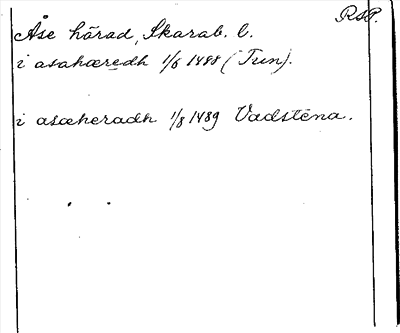 RSP.
Åse härad, Skarab. l.
i asahæredh 1/6 1488 (Tun).
i asæheradh 1/8 1489 Vadstena.